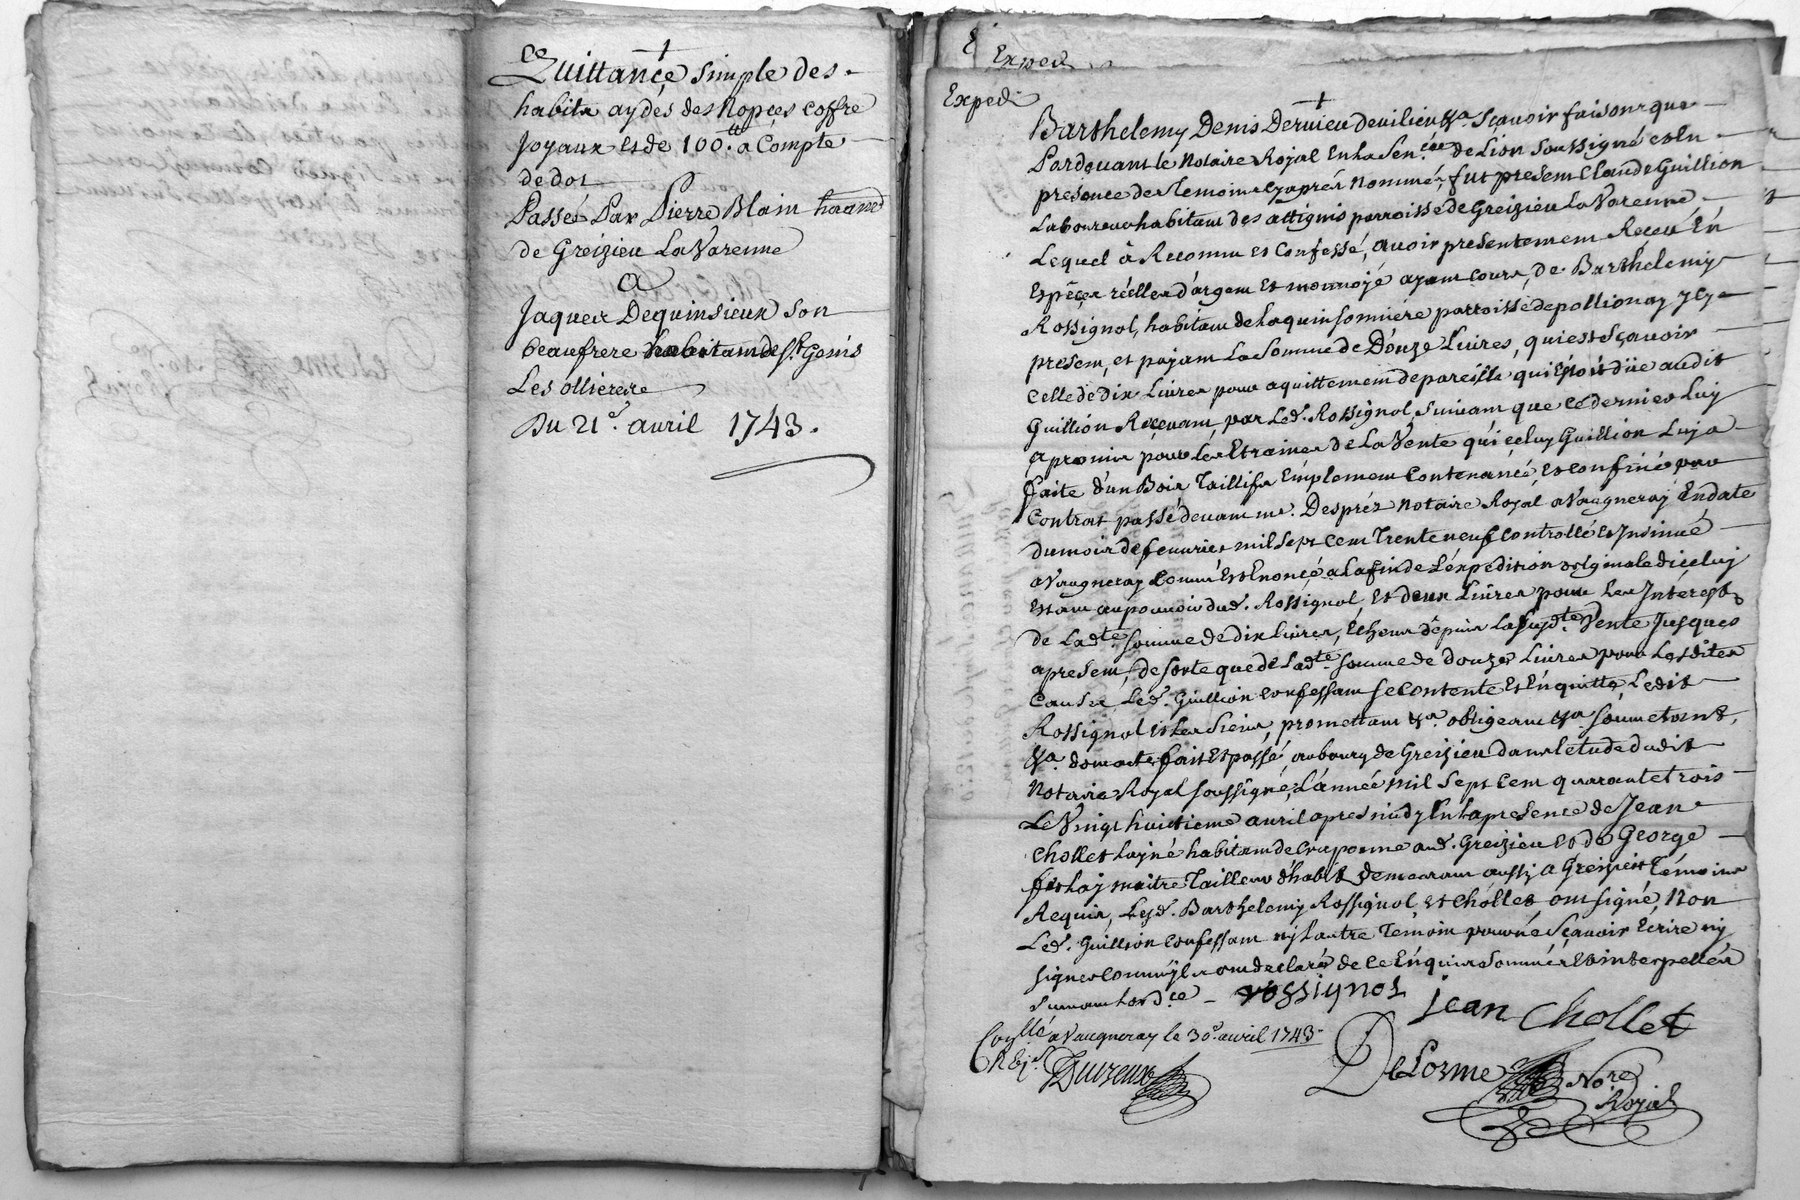 Quittance simple des
habits aydés des Nopces coffre
Joyaux et de 100.tt a Compte
de dot
Passée Par Pierre Blain
de Greizieu La Varenne
A
Jaques Dequinsieux son
beaufrere habitant de St. Genis
Les ollieres
Du 21e. avril 1743.
Exped
Expedé
Barthelemy Denis Dervieu de vilieu &a. sçavoir faisons que
Pardevant le Notaire Royal En la Sen.ée de Lion Soussigné et En
presence des temoins cy aprés Nommes, fut present Claude Guillion
Laboureur habitant des attignis parroisse de Greizieu La Varenne
Lequel à Reconnu et Confessé, avoir presentement Receu En
Espèces réelles d'argent et monnoyé ayant cours, de Barthelemy
Rossignol, habitant de la quinsonniére parroisse de pollionay icy
present, et payant La Somme de Douze Livres, qui est Sçavoir
Celle de dix Livres pour aquittement de pareille qui Etoit düe audit
Guillion Recevant, par Led. Rossignol, suivant que ce dernier Luy
a promis pour les Etraines de La Vente qu'iceluy Guillion Luy a
faite d'un Bois Taillifs Emplement Contenancé, et confiné par
Contrat passé devant me. Després Notaire Royal a Vaugneray En date
du mois de fevrier mil Sept Cent Trente neuf Controllé et Insinué
a Vaugneray comm' Est Enoncé a la fin de L'éxpédition originale d'iceluy
Estant au pouvoir dud. Rossignol, Et deux Livres pour Les Interests
de Ladte. Somme de dix livres, Echeus depuis La susdte. Vente Jusques
apresent, de sorte que de Ladte. Somme de douze Livres pour Lesdites
Causes Led. Guillion confessant se Contente Et En quitte, Ledit
Rossignol et les Siens, promettant &a. obligeant &a. soumettant &,
&a. dont acte fait Et passé, au bourg de Greizieu dans l'etude dudit
Notaire Royal soussigné, L'année mil Sept Cent quarante trois
Le Vingt huitieme avril apres midy En la presence de Jean
Chollet Layné habitant de Craponne aud. Greizieu et de George
maitre Tailleur d'habits demeurant aussi a Greizieu Témoins
Requis, Lesd. Barthelemy Rossignol, et Chollet ont signé, Non
Led. Guillion confessant ny L'autre Temoin pour né Sçavoir Ecrire ny
signer comm'ils ont declaré de ce Enquis Sommés Et interpellés
suivant Lord.ce rossignol
Jean Chollet
Conllé a Vaugneray le 30e. avril 1743
DeLorme Nore
Royal